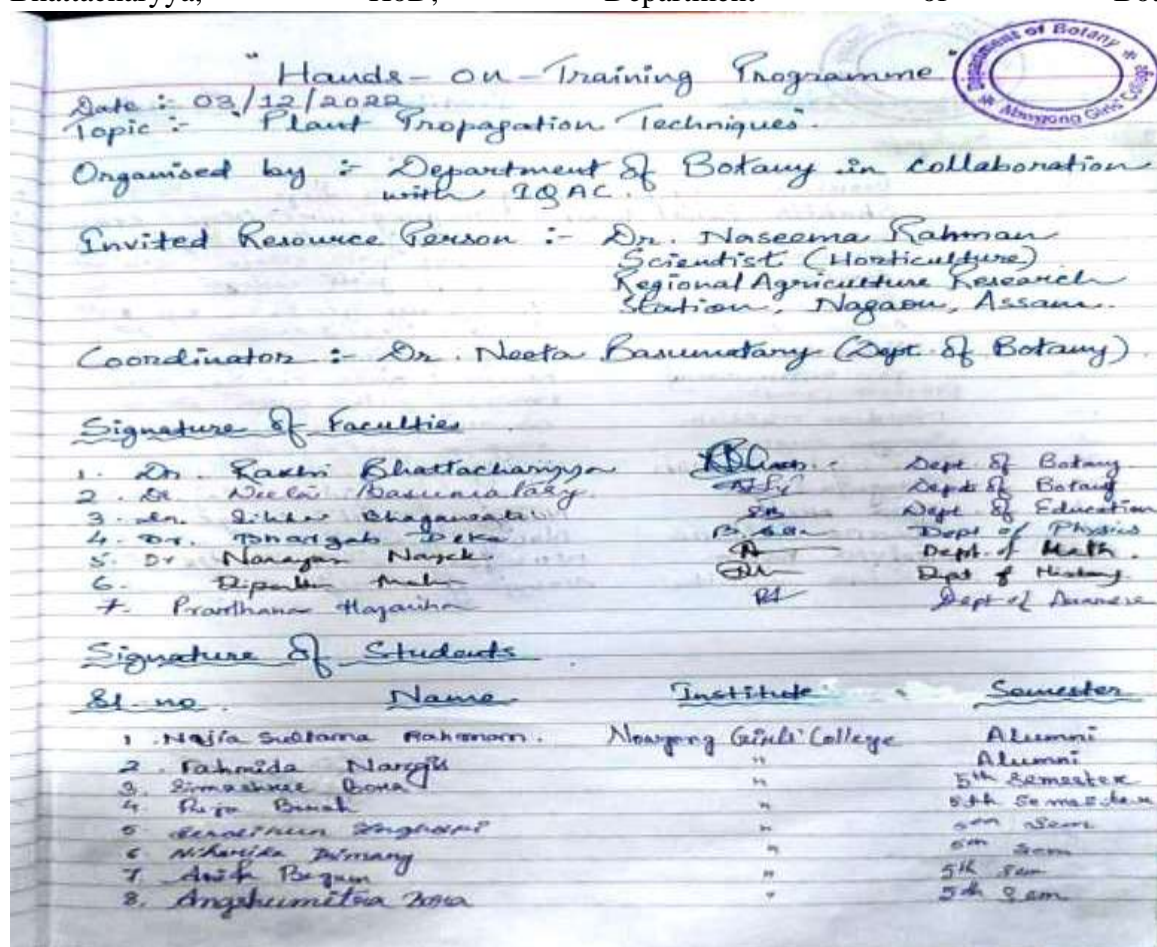 Bhattacharyya, HoD, Department of Bot
" Hands-on-Training Programme "
Department of Botany * Nowgong Girls' College *
Date :- 03/12/2022
Topic :- "Plant Propagation Techniques".
Organised by :- Department of Botany in collaboration
with IQAC.
Invited Resource Person :- Dr. Naseema Rahman
Scientist (Horticulture)
Regional Agriculture Research
Station, Nagaon, Assam.
Coordinator :- Dr. Neeta Basumatary (Dept. of Botany)
Signature of Faculties
1. Dr. Rakhi Bhattacharyya Dept. of Botany
2. Dr Neeta Basumatary Dept of Botany
3. Dr. Bhagawati Dept of Education
4. Dr. Bhargab Deka Dept of Physics
5. Dr Narayan Nayak Dept. of Math.
6. Dept of History
7. Prarthana Hazarika Dept of Assamese
Signature of Students
Sl-no. Name Institute Semester
1. Najia Sultana Rahman. Nowgong Girls' College Alumni
2. Fahmida Nargis " Alumni
3. Simashree Bora " 5th Semester
4. " 5th Semester
5. " Sem
6. " 5th Sem
7. Begum " 5th Sem
8. Angshumitra Bora " 5th Sem